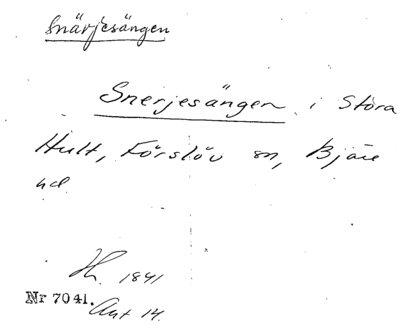 Snärjesängen
Snerjesängen i Stora
Hult, Förslöv sn, Bjäre
hd
Hh. 1841
Nr 7041.
Akt 14.